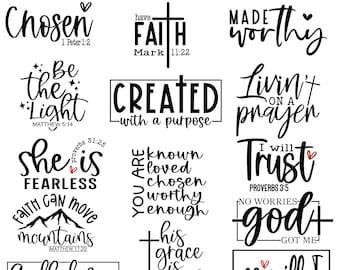 Chosen
1 Peter 1:2
have
FAITH
Mark 11:22
MADE
worthy
Be
the
Light
MATTHEW 5:14
CREATED
with a purpose
Livin'
ON A
prayer
she is
FEARLESS
Proverbs 31:25
YOU ARE
known
loved
chosen
worthy
enough
I will
Trust
PROVERBS 3:5
FAITH CAN MOVE
mountains
MATTHEW 17:20
his
grace
is
NO WORRIES
god
GOT ME